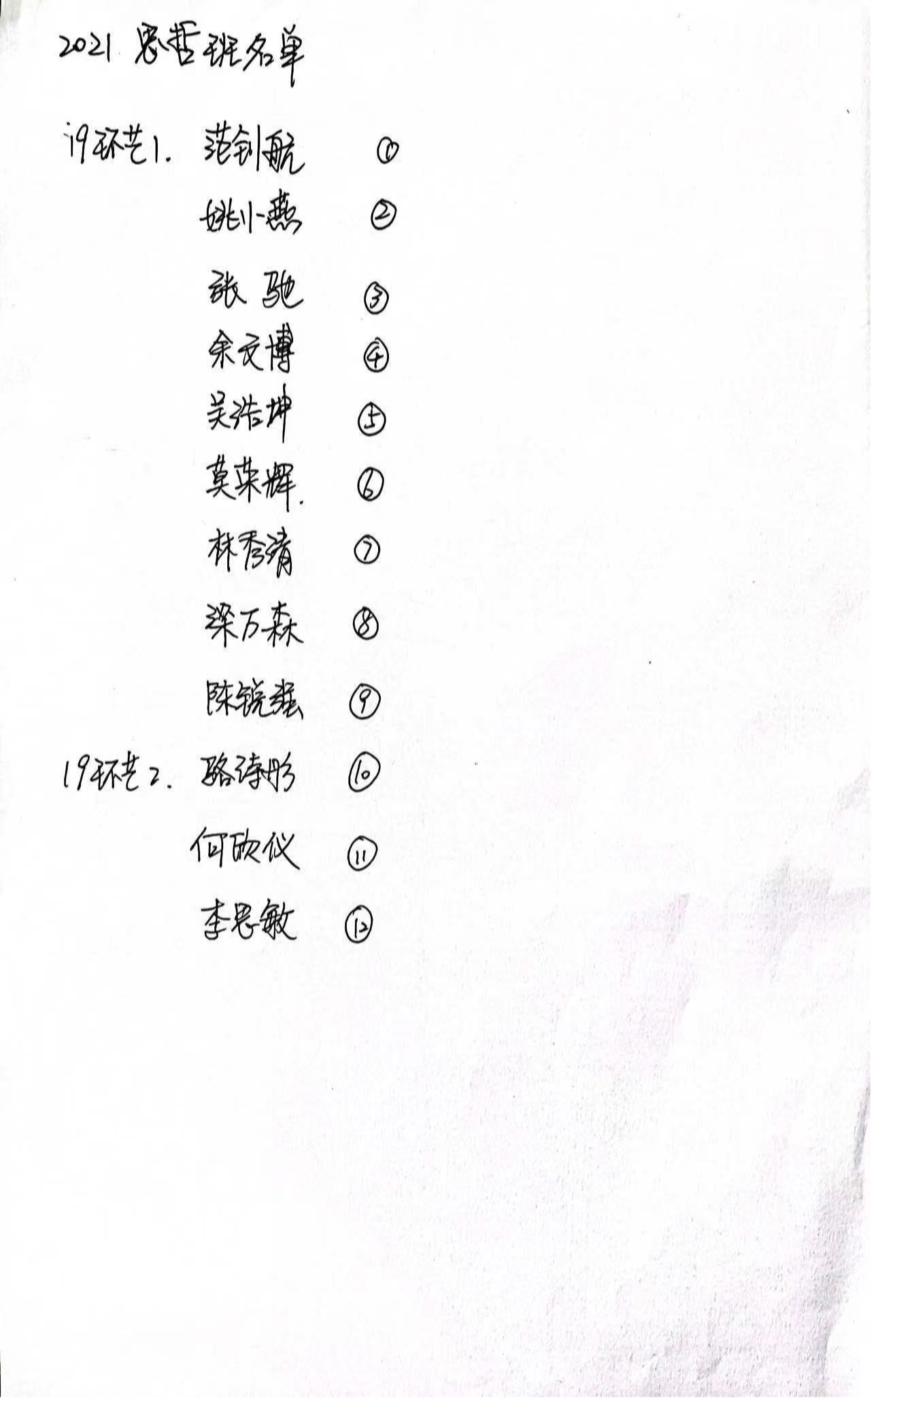 2021 思哲班名单
19环艺1. 范钊航 ①
姚小燕 ②
张驰 ③
余文博 ④
吴浩坤 ⑤
莫荣辉. ⑥
林秀清 ⑦
梁万森 ⑧
陈锐强 ⑨
19环艺2. 骆诗彤 ⑩
何欣仪 ⑪
李思敏 ⑫